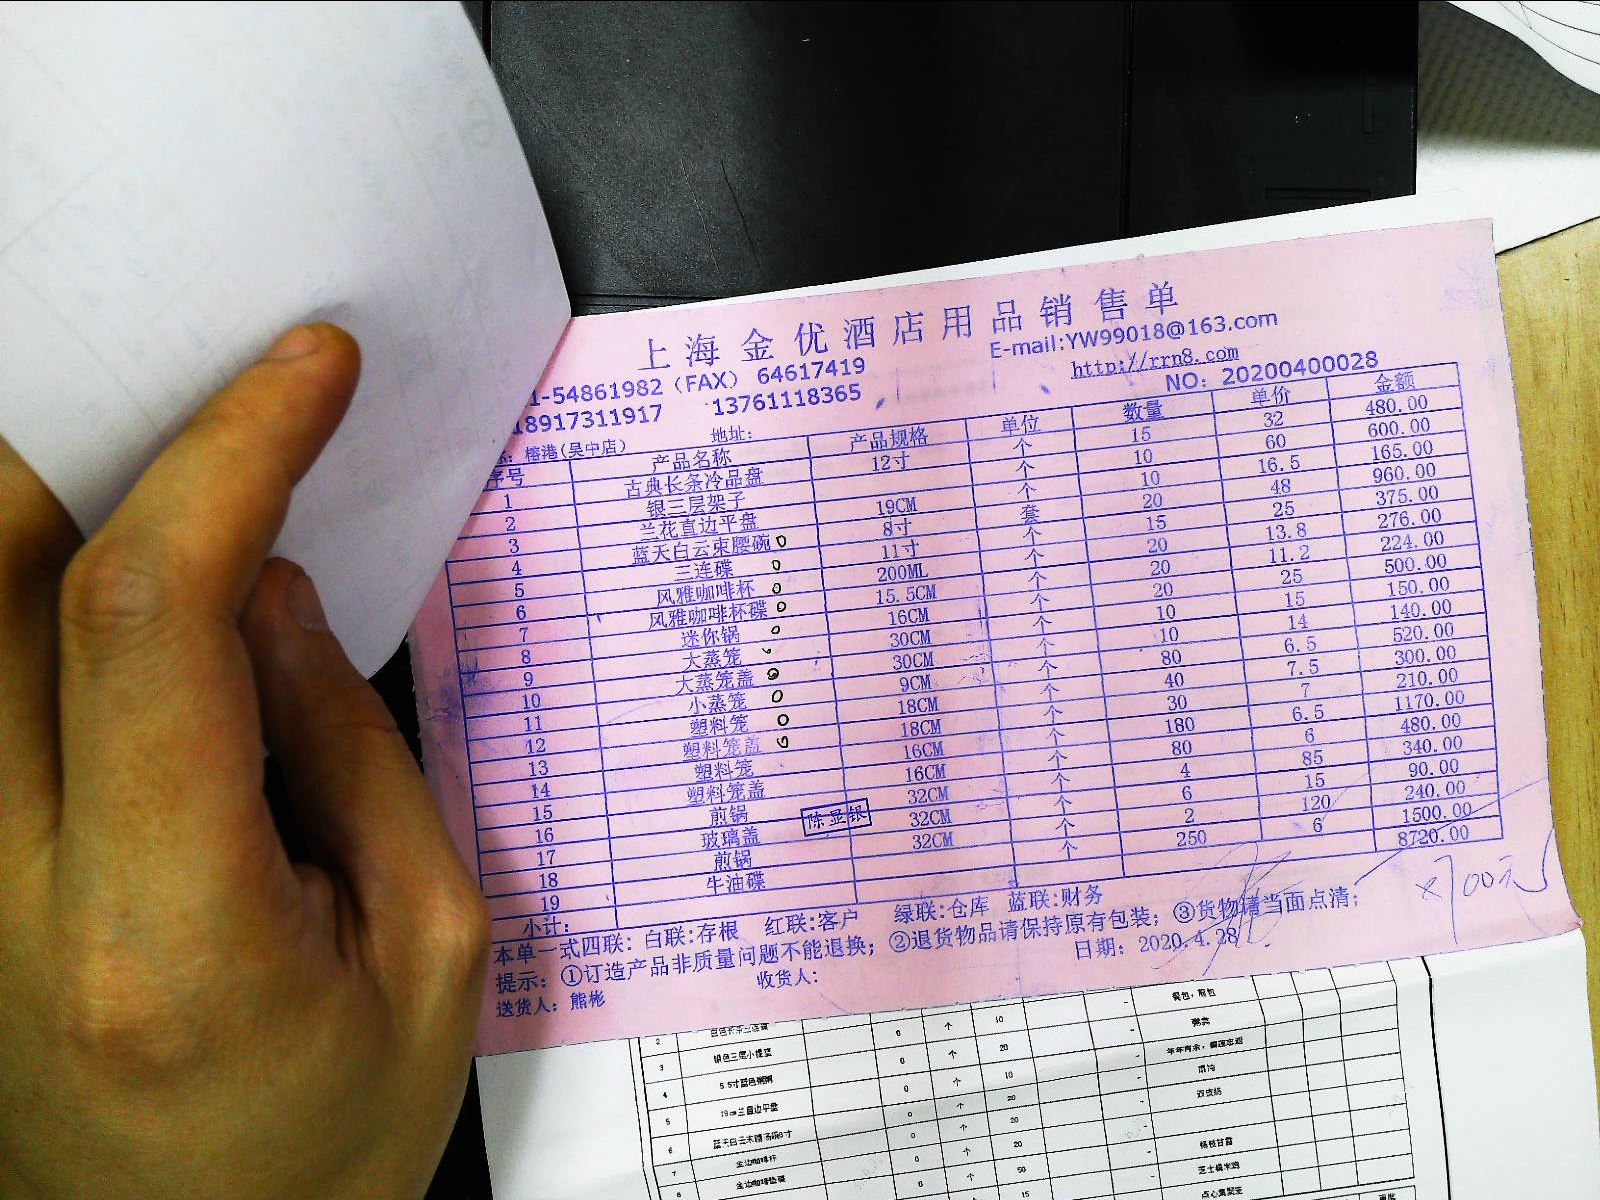 上海金优酒店用品销售单
1-54861982（FAX） 64617419 E-mail:YW99018@163.com
18917311917 13761118365 http://rrn8.com
榕港(吴中店) 地址: NO: 20200400028
序号 产品名称 产品规格 单位 数量 单价 金额
1 古典长条冷品盘 12寸 个 15 32 480.00
2 银三层架子 个 10 60 600.00
3 兰花直边平盘 19CM 个 10 16.5 165.00
4 蓝天白云束腰碗 8寸 套 20 48 960.00
5 三连碟 11寸 个 15 25 375.00
6 风雅咖啡杯 200ML 个 20 13.8 276.00
7 风雅咖啡杯碟 15.5CM 个 20 11.2 224.00
8 迷你锅 16CM 个 20 25 500.00
9 大蒸笼 30CM 个 10 15 150.00
10 大蒸笼盖 30CM 个 10 14 140.00
11 小蒸笼 9CM 个 80 6.5 520.00
12 塑料笼 18CM 个 40 7.5 300.00
13 塑料笼盖 18CM 个 30 7 210.00
14 塑料笼 16CM 个 180 6.5 1170.00
15 塑料笼盖 16CM 个 80 6 480.00
16 煎锅 32CM 个 4 85 340.00
17 玻璃盖 32CM 个 6 15 90.00
18 煎锅 32CM 个 2 120 240.00
19 牛油碟 个 250 6 1500.00
小计: 8720.00
陈显银
本单一式四联: 白联:存根 红联:客户 绿联:仓库 蓝联:财务
提示: ①订造产品非质量问题不能退换; ②退货物品请保持原有包装; ③货物请当面点清;
送货人: 熊彬 收货人: 日期: 2020.4.28
2 0 个 10 -
3 银色三层小提篮 0 个 20 -
4 0 个 10 -
5 19cm兰直边平盘 0 个 20
6 0 个 20
7 金边咖啡杯 0 个 20 杨枝甘露
8 金边咖啡垫碟 0 个 50 芝士焗米鸡
15